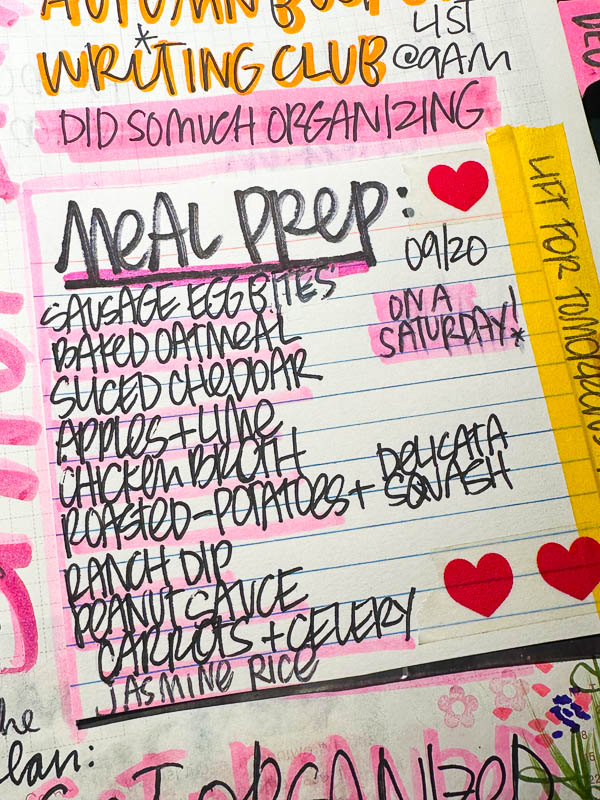 LIST
WRITING CLUB @9AM
DID SO MUCH ORGANIZING
MEAL PREP:
09/20
SAUSAGE EGG BITES
ON A
SATURDAY!*
BAKED OATMEAL
SLICED CHEDDAR
APPLES + LIME
CHICKEN BROTH
ROASTED-POTATOES + DELICATA SQUASH
RANCH DIP
PEANUT SAUCE
CARROTS + CELERY
JASMINE RICE
LIFT FOR TOMORROW
ORGANIZED